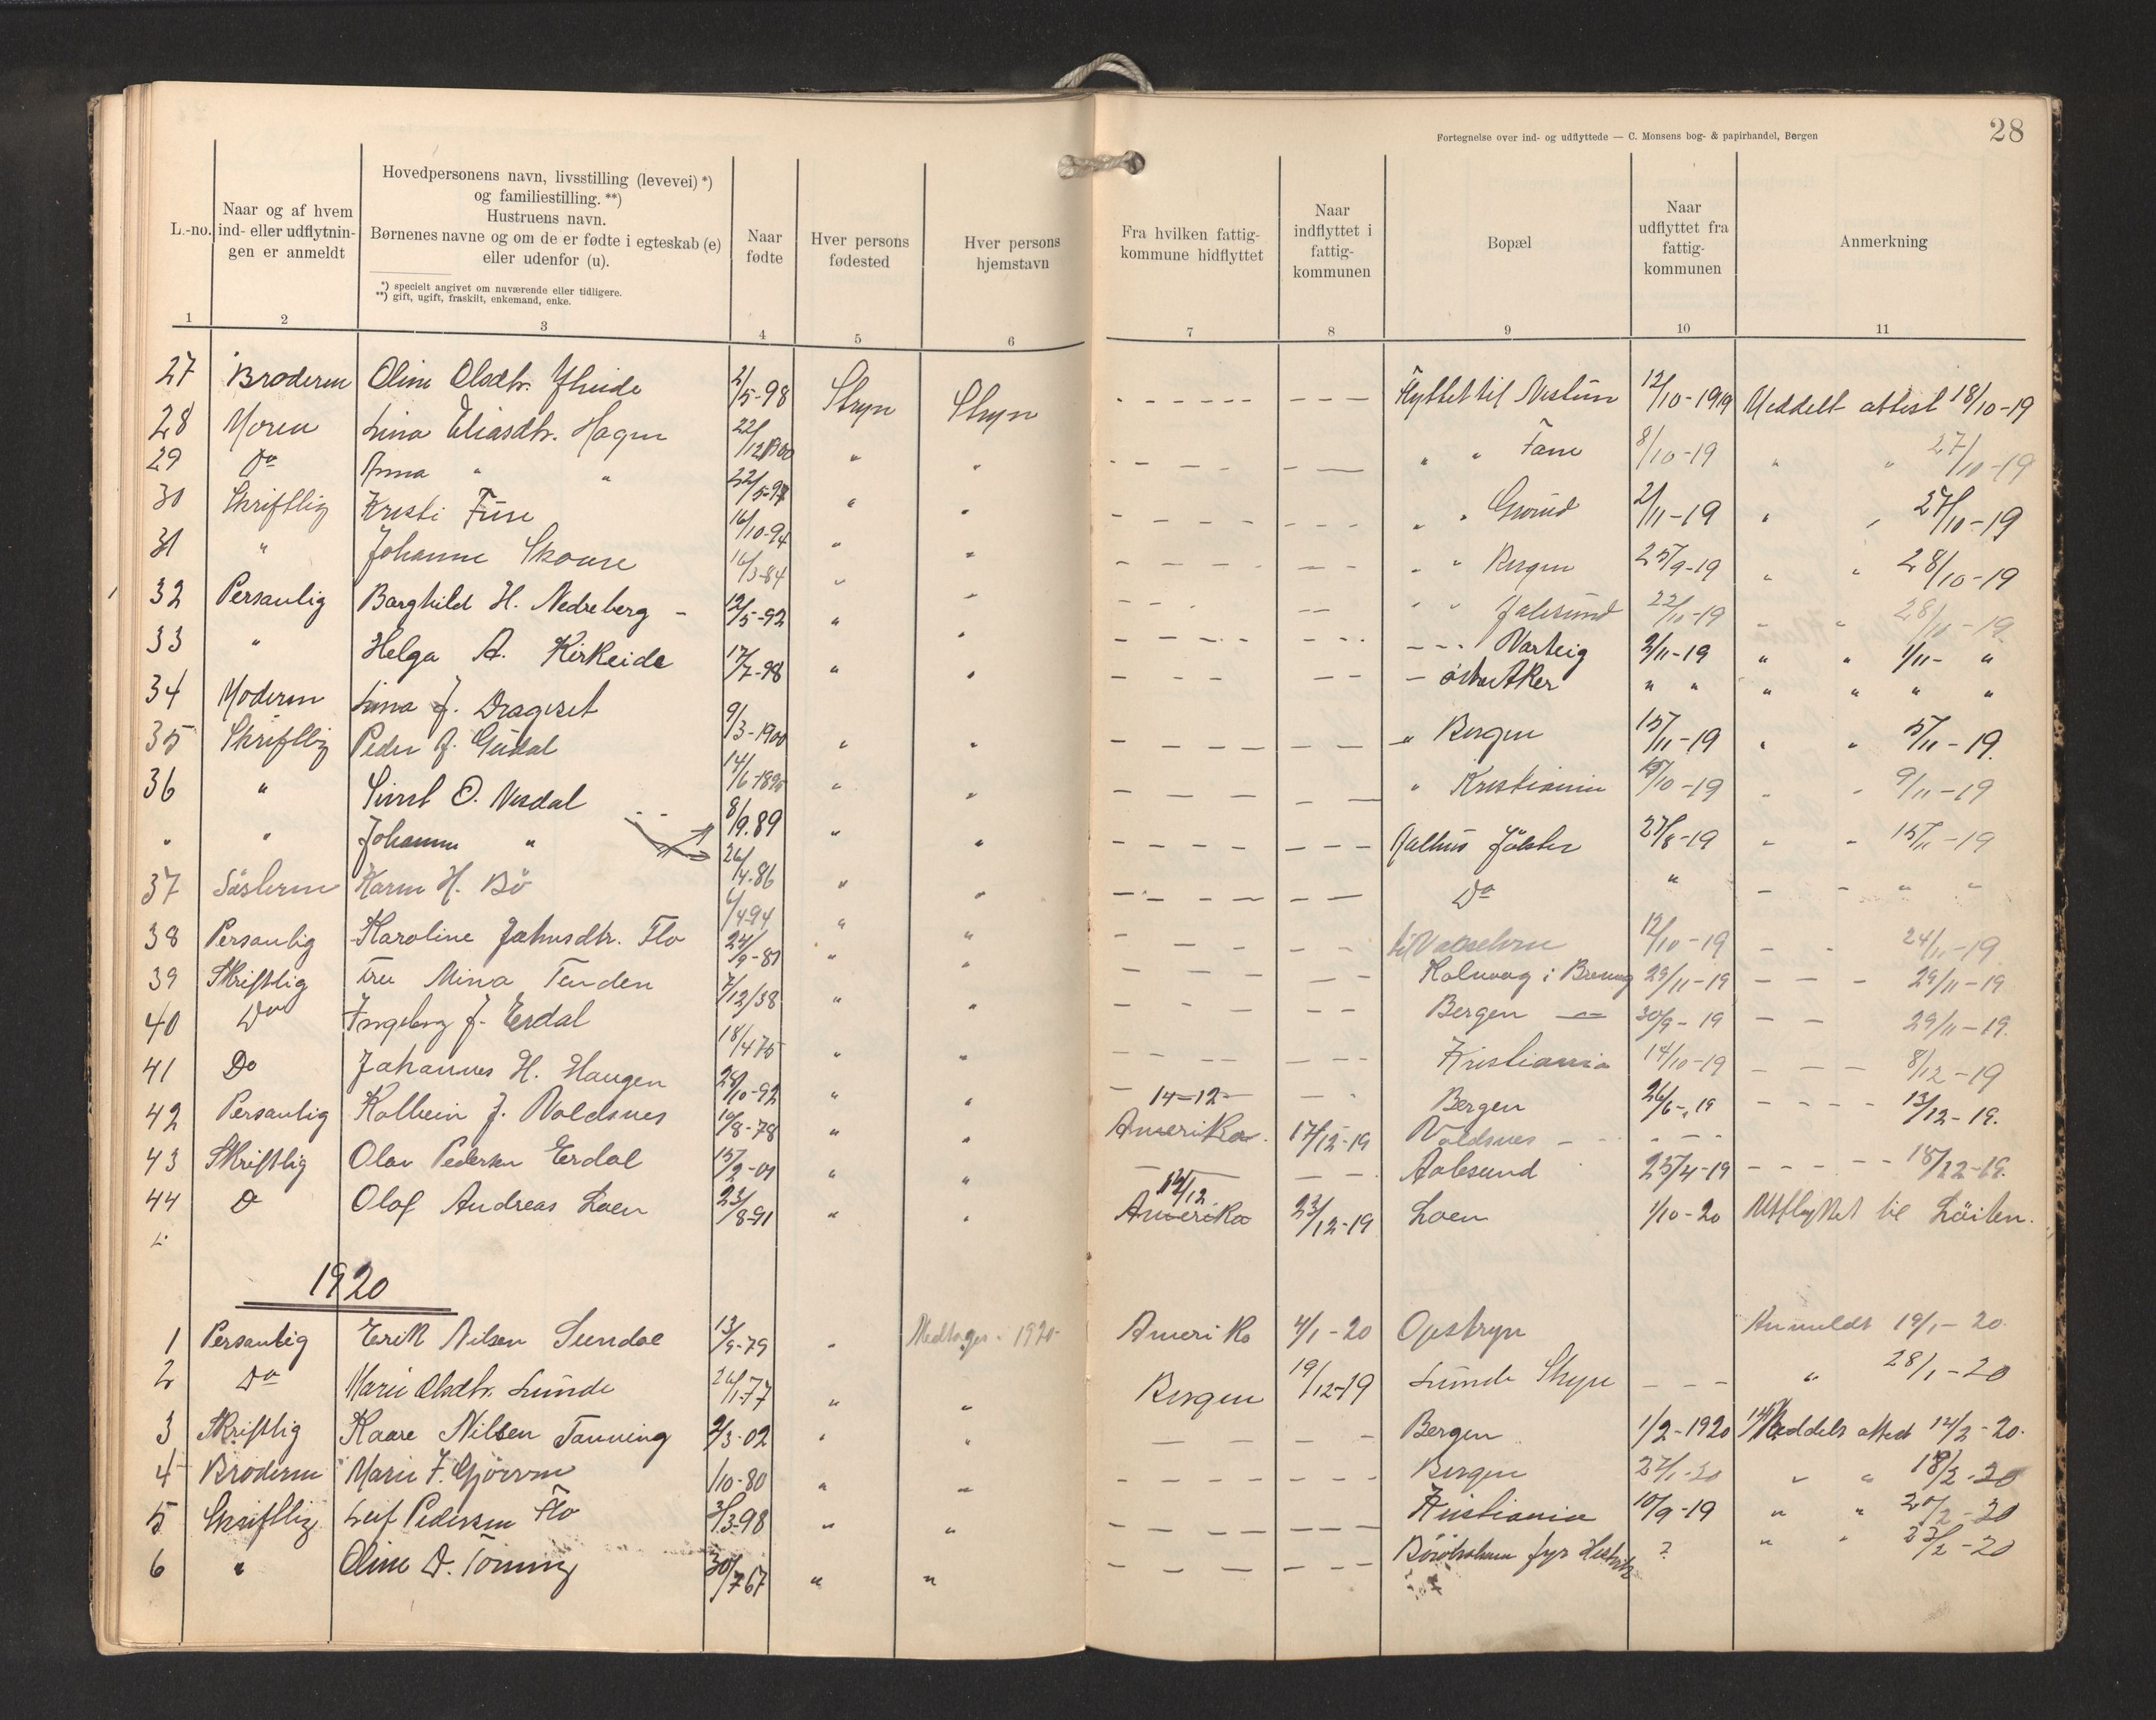 Fortegnelse over ind- og udflyttede — C. Monsens bog- & papirhandel, Bergen
28
L.-no.
Naar og af hvem ind- eller udflytnin-gen er anmeldt
Hovedpersonens navn, livsstilling (levevei) *) og familiestilling. **) Hustruens navn. Børnenes navne og om de er fødte i egteskab (e) eller udenfor (u).
*) specielt angivet om nuværende eller tidligere.
**) gift, ugift, fraskilt, enkemand, enke.
Naar fødte
Hver persons fødested
Hver persons hjemstavn
Fra hvilken fattig-kommune hidflyttet
Naar indflyttet i fattig-kommunen
Bopæl
Naar udflyttet fra fattig-kommunen
Anmerkning
1 2 3 4 5 6 7 8 9 10 11
27 Broderen Oline Olsdtr. 2/5-98 Stryn Stryn - - - - - - - - - Flyttet til Nestun 12/10-1919 Meddelt attest 18/10-19
28 Moren Lina Eliasdtr. Hagen 22/12 1900 " " - - - - - - " " Fane 8/10-19 " " 27/10-19
29 Do Anna " " 22/5-97 " " - - - - - - - " " 2/11-19 " " 27/10-19
30 Skriftlig Kristi Fure 16/10-94 " " - - - - - - - " " Bergen 25/9-19 " " 28/10-19
31 " Johanne Skaare 16/3-84 " " - - - - - " " Aalesund 22/10-19 " " 28/10-19
32 Personlig Borghild H. Nedreberg - 12/5-92 " " - - - - - - - - - - Varteig 2/11-19 " " 1/11- "
33 " Helga A. Kirkeide 17/7-98 " " - - - - - - - Østre Aker " " " " " "
34 Moderen Lina J. Drageset 9/3-1900 " " - - - - - - - - " Bergen 15/11-19 " " 5/11-19.
35 Skriftlig Peder J. Gudal 14/6-1895 " " - - - - - - " Kristiania 15/10-19 " " 9/11-19
36 " Sivert O. Nesdal 8/9.89 " " - - - - - - - Aalhus Jølster 27/8-19 " " 15/11-19
" " Johanne " 26/4.86 " " - - - - - - Do " - - " "
37 Søsteren Karen H. Bø 6/4 94 " " - - - - - - 12/10-19 - - 24/11-19
38 Personlig Karoline Johnsdtr. Flo 24/9-87 " " - - - - - - Kalvaag i 29/11-19 - - - 29/11-19
39 Skriftlig Fru Mina Tenden 7/12/38 " " - - - - - - Bergen — 30/9-19 - - 29/11-19.
40 Do Ingeborg J. Erdal 18/4 75 " " - - - - - - - Kristiania 14/10-19 - - - 8/12-19
41 Do Johannes H. Haugen 28/10-92 " " - 14-12- - - Bergen 26/6-19 - - - - 13/12-19.
42 Personlig Kolbein J. Voldsnes 10/8-78 " " Amerika. 17/12-19 Voldsnes - - - -
43 Skriftlig Olav Pedersen Erdal 15/2-01 " " - - - Aalesund 25/4-19 - - - - - 18/12-19.
44 D Olaf Andreas Loen 23/8-91 " " 14/12 Amerika 23/12-19 Loen 1/10-20 Utflyttet til Løiten.
1920
1 Personlig Erik Nilsen Sundal 13/9-79 " Medtages 1920 Amerika 4/1-20 Opstryn Anmeldt 19/1-20.
2 Do Marie Olsdtr. Lunde 26/1-77 " " Bergen 19/12-19 Lunde Stryn - - - " 28/1-20
3 Skriftlig Kaare Nilsen Tonning 2/3-02 " " - - - - Bergen 1/2-1920 Meddelt attest 14/2-20.
4 Broderen Marie J. Gjørven /10-80 " " - - - - - - - - Bergen 27/1-20 " " 18/2-20
5 Skriftlig Leif Pedersen Flo 31/3-98 " " - - - - - - - - Kristiania 10/9-19 " " 20/2-20
6 " Oline D. Tonning 30/7 67 " " - - - - - - - fyr ? " " 23/2-20